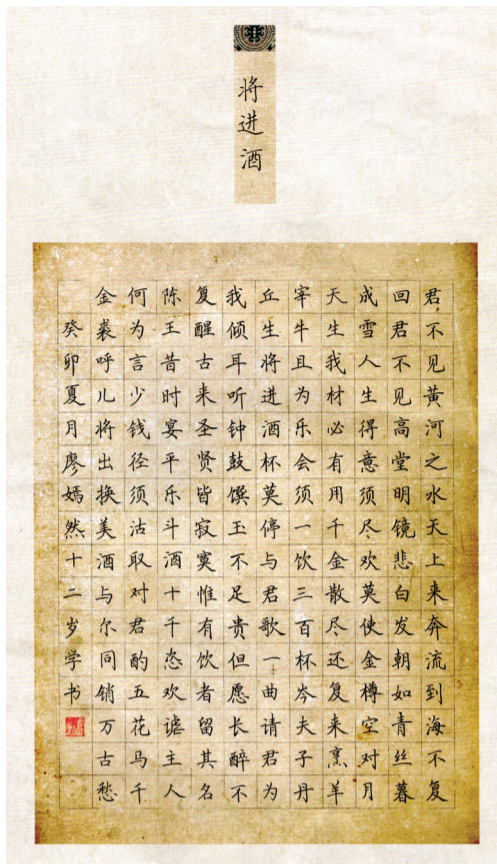 将进酒
君不见黄河之水天上来奔流到海不复
回君不见高堂明镜悲白发朝如青丝暮
成雪人生得意须尽欢莫使金樽空对月
天生我材必有用千金散尽还复来烹羊
宰牛且为乐会须一饮三百杯岑夫子丹
丘生将进酒杯莫停与君歌一曲请君为
我倾耳听钟鼓馔玉不足贵但愿长醉不
复醒古来圣贤皆寂寞惟有饮者留其名
陈王昔时宴平乐斗酒十千恣欢谑主人
何为言少钱径须沽取对君酌五花马千
金裘呼儿将出换美酒与尔同销万古愁
癸卯夏月廖嫣然十二岁学书